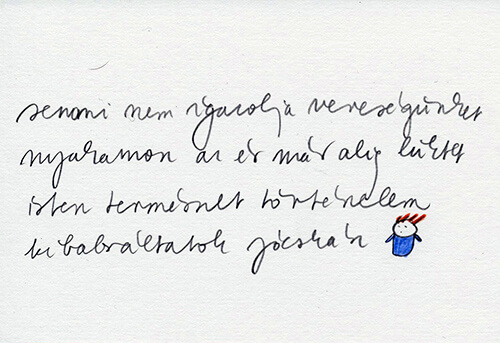 senomi nem igazolja vereségünket
nyakamon az ér már alig lüktet
isten természet történelem
kibabráltatok jócskán